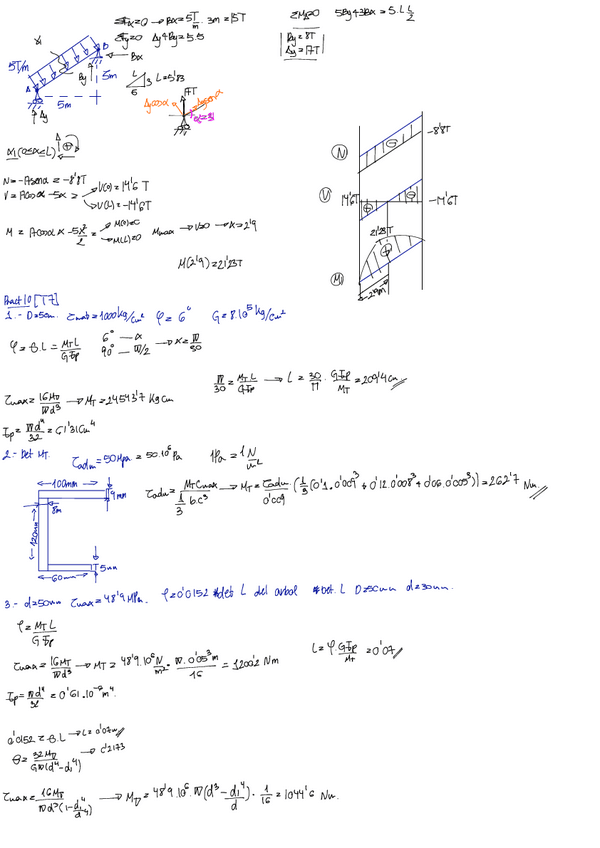 ΣFx=0 → Bx = 5 T/m · 3m = 15T
ΣFy=0 Ay+By = 5.5
ΣMA=0 5By+3Bx = 5.L L/2
By = 8T
Ay = 17T
5T/m
A
B
Bx
By
Ay
5m
3m
L
3
6
L=5'83
17T
Aycosα
Aysenα
α=31
α/(0≤x≤L)
N = -Asenα = -8'8T
V = Acosα - 5x = → V(0)=14'6 T
→ V(L)=-14'6T
M = Acosα x - 5x²/2 = → M(0)=0
→ M(L)=0
Mmax → V=0 → x=2'9
M(2'9) = 21'23T
N
-8'8T
V
14'6T
-14'6T
21'23T
M
2'9m
Pract 10 [T7]
1.- D=5cm. τmab=1000kg/cm² φ = 6° G = 8.10⁵ kg/cm²
φ = θ.L = MT L / G Ip
6° — x
90° — π/2 → x = π/30
π/30 = MT L / G Ip → L = 30/π · G Ip / MT = 209'4 cm
τmax = 16 MT / πd³ → MT = 24543'7 kg cm
Ip = πd⁴/32 = 61'31cm⁴
2.- Det MT. τadm = 50Mpa = 50.10⁶ Pa 1Pa = 1 N/m²
100mm
9mm
8m
120mm
60mm
5mm
τadm = MT Cmax / 1/3 b.c³ → MT = τadm / 0'009 · (1/3(0'1.0'009³ + 0'12.0'008³ + 0'06.0'005³)) = 262'7 Nm
3.- d=50mm τmax = 48'9 MPa. φ=0'0152 *det L del arbol *Det. L D=50mm d=30mm.
φ = MT L / G Ip
τmax = 16MT / πd³ → MT = 48'9.10⁶ N/m² · π.0'05³m / 16 = 1200'2 Nm
L = φ · G Ip / MT = 0'07
Ip = πd⁴/32 = 0'61.10⁻⁶m⁴.
0'0152 = θ.L → L = 0'07m
θ = 32 MT / Gπ(d⁴-d₁⁴) → 0'2173
τmax = 16MT / πd³(1-d₁⁴/d⁴) → MT = 48'9.10⁶. π(d³ - d₁⁴/d) · 1/16 = 1044'6 Nm.